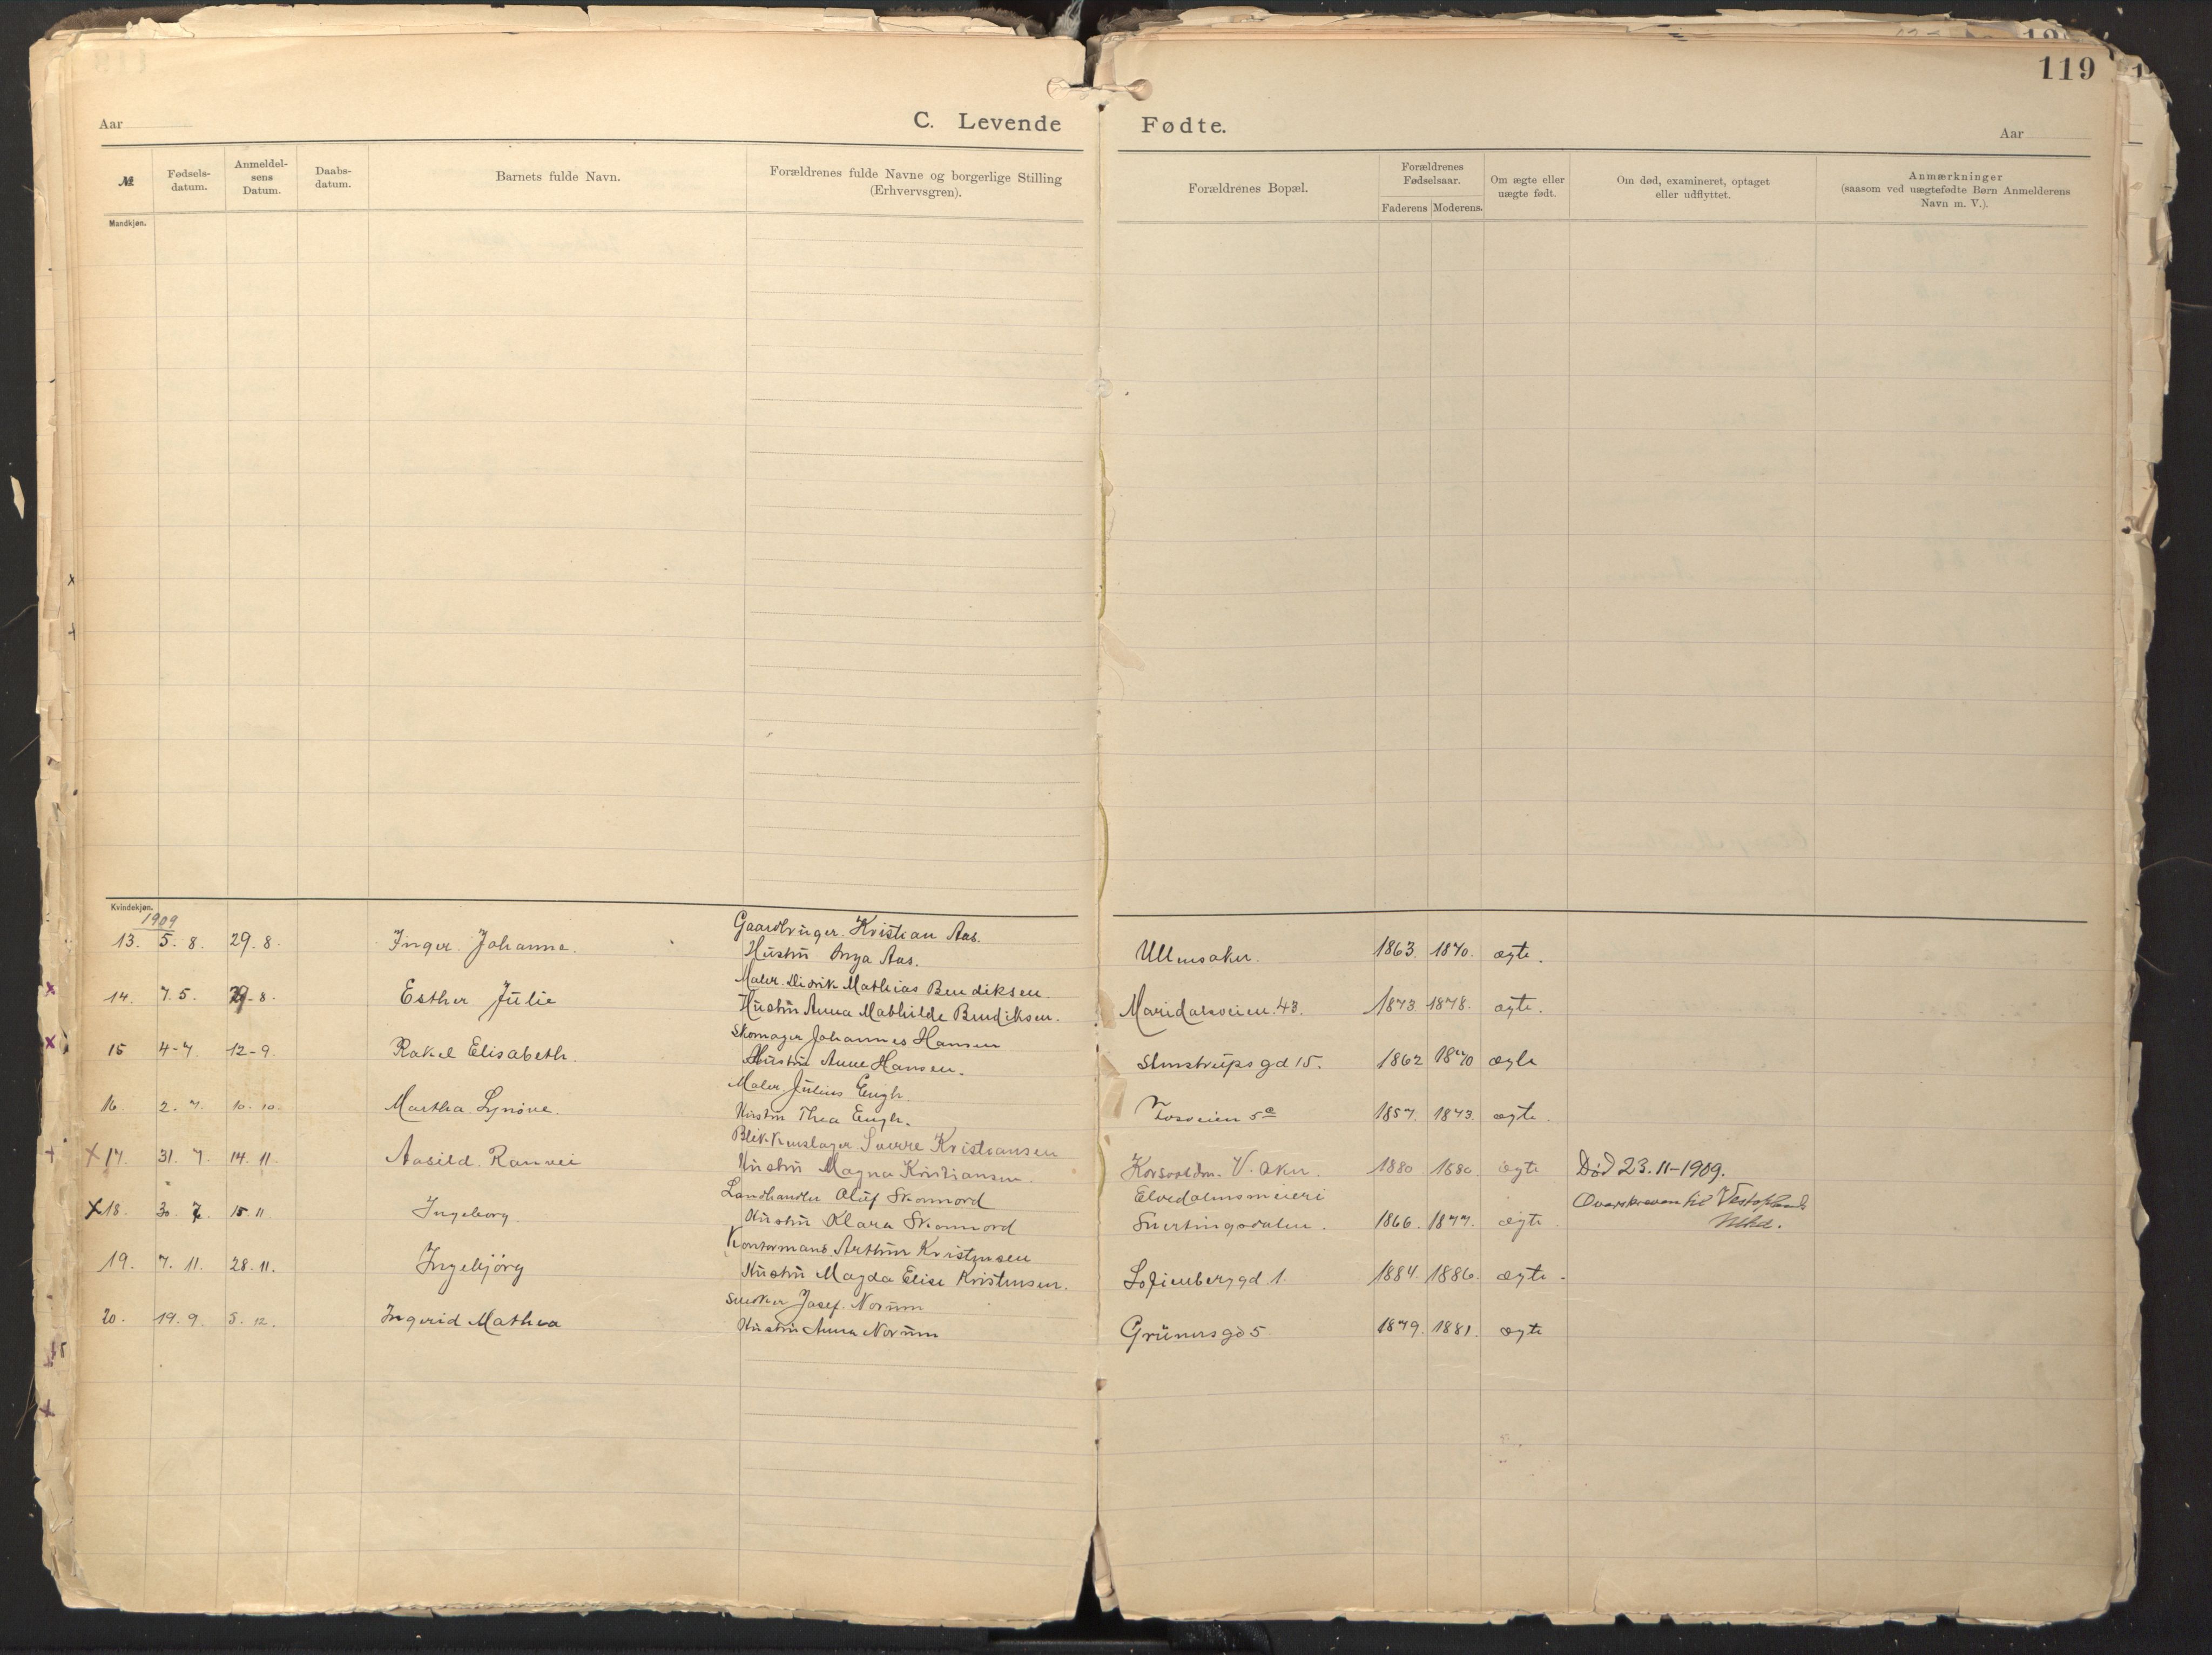 119
Aar
C. Levende Fødte.
Aar
№ Fødselsdatum. Anmeldelsens Datum. Daabsdatum. Barnets fulde Navn. Forældrenes fulde Navne og borgerlige Stilling (Erhvervsgren). Forældrenes Bopæl. Forældrenes Fødselsaar. Faderens Moderens. Om ægte eller uægte født. Om død, examineret, optaget eller udflyttet. Anmærkninger (saasom ved uægtefødte Børn Anmelderens Navn m. V.).
Mandkjøn.
Kvindekjøn.
1909
Gaardbruger Kristian Aas.
13. 5. 8. 29. 8. Inger Johanna. Hustru Inga Aas. Ullensaker. 1863. 1870. ægte.
Maler Didrik Mathias Bendiksen.
x 14. 7. 5. 29-8. Esther Julie Hustru Anna Mathilde Bendiksen. Maridalsveien 43. 1873. 1878. ægte.
Skomager Johannes Hansen
x 15 4-7. 12-9. Rakel Elisabeth. Hustru Anne Hansen. Steenstrups gd 15. 1862 1870 ægte
Maler Julius Engh.
16 2. 7. 10. 10. Martha Synøve. Hustru Thea Engh. 5a 1857. 1873. ægte.
Blikkenslager Sverre Kristiansen
x 17 31. 7. 14. 11. Aasild Ranvei Hustru Magna Kristiansen. Korsvoldm. V. Aker. 1880 1880 ægte Død 23.11-1909.
Landhandler Oluf Skonnord Elvedalens meieri Overskreven til Vestoplands
x 18. 30. 7. 15. 11 Ingeborg. Hustru Klara Skonnord Snertingsdalen. 1866. 1877. ægte Mhd.
Kontormand Arthur Kristensen
19. 7. 11. 28. 11. Ingebjörg Hustru Magda Elise Kristensen. Sofienberg gd 1. 1884. 1886. ægte.
Snedker Josef Norum
20. 19. 9. 5. 12. Ingerid Mathea Hustru Anna Norum Grünersgd 5 1879. 1881. ægte